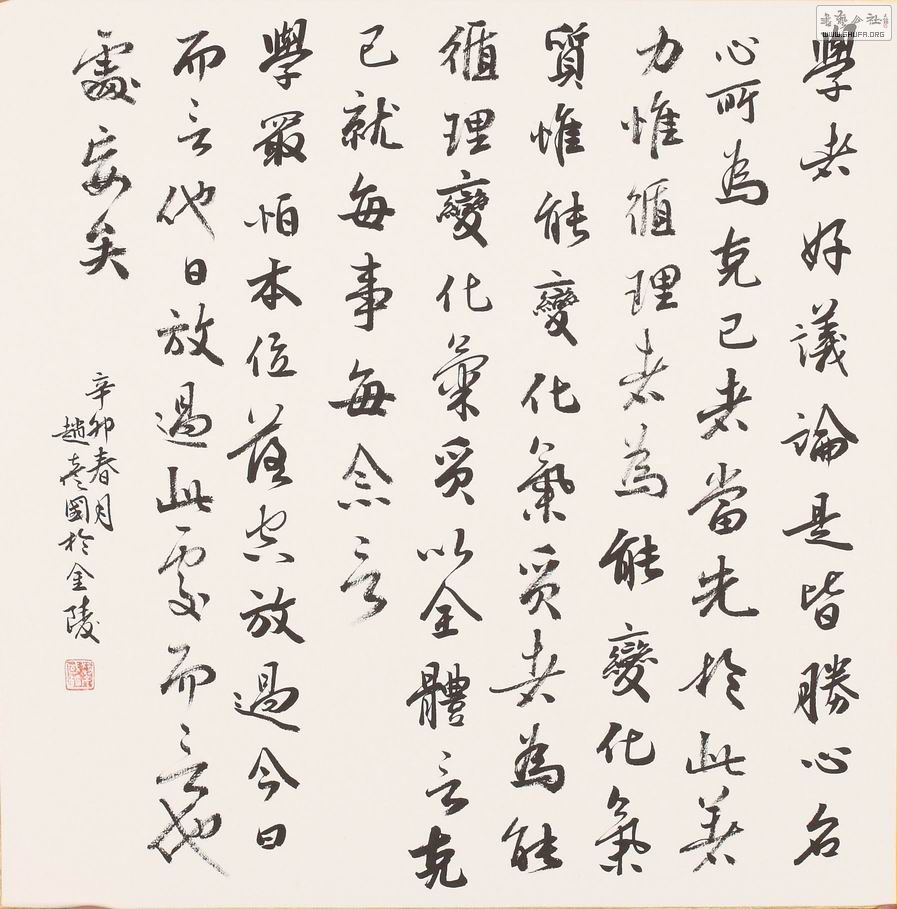 學者好議論是皆勝心名
心所為克己者當先於此著
力惟循理者為能變化氣
質惟能變化氣質者為能
循理變化氣質以全體言克
己就每事每念言
學最怕本位落空放過今日
而言他日放過此處而言他
處妄矣
辛卯春月
趙彥國於金陵
書藝公社
WWW.SHUFA.ORG